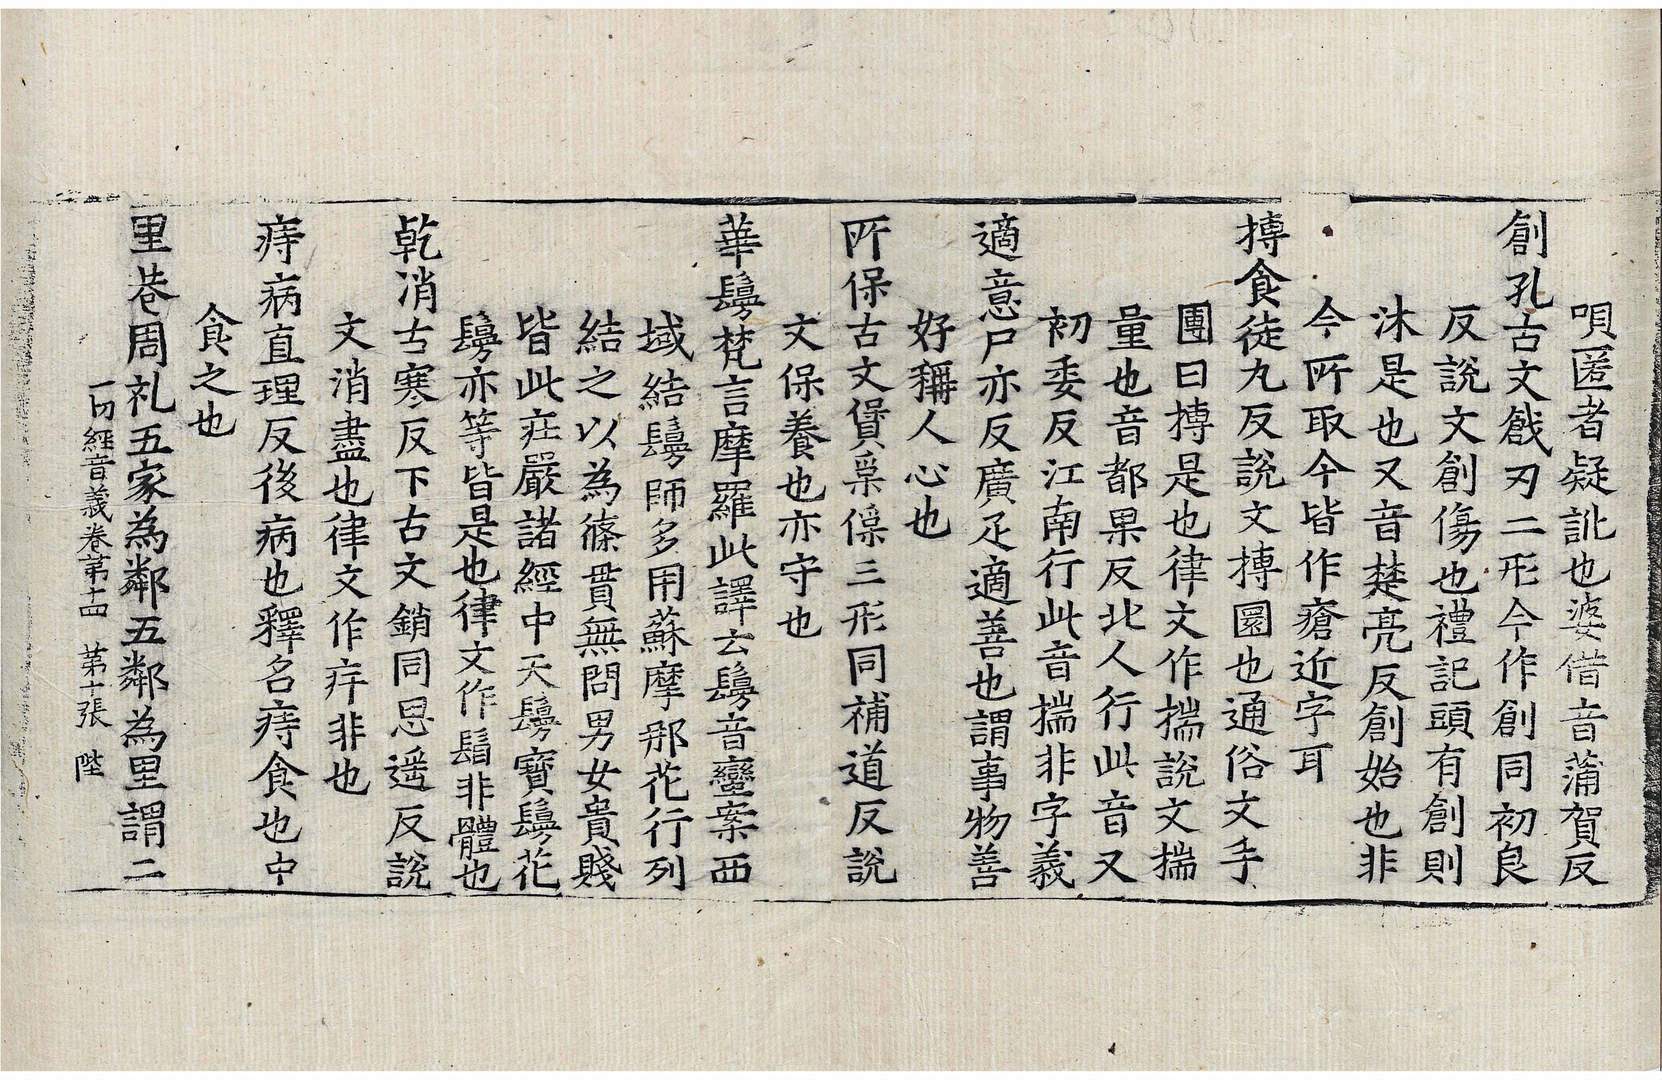 唄匿者疑訛也婆借音蒲賀反
創孔古文戧刃二形今作創同初良
反說文創傷也禮記頭有創則
沐是也又音楚亮反創始也非
今所取今皆作瘡近字耳
摶食徒九反說文摶圜也通俗文手
團曰摶是也律文作揣說文揣
量也音都果反北人行此音又
初委反江南行此音揣非字義
適意尸亦反廣疋適善也謂事物善
好稱人心也
所保古文𠈃𤔍保三形同補道反說
文保養也亦守也
華鬘梵言摩羅此譯云鬘音蠻案西
域結鬘師多用蘇摩那花行列
結之以為絛貫無問男女貴賤
皆此莊嚴諸經中天鬘寶鬘花
鬘亦等皆是也律文作𩭤非體也
乾消古寒反下古文銷同思遥反說
文消盡也律文作疛非也
痔病直理反後病也釋名痔食也中
食之也
里巷周礼五家為鄰五鄰為里謂二
一切經音義卷第十四 第十張 陛